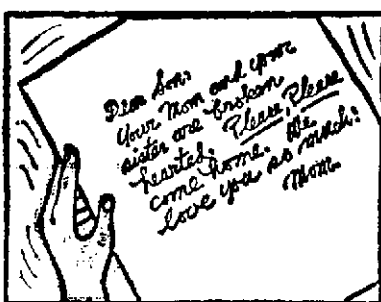 Dear Son:
Your Mom and your
sister are broken
hearted. Please, Please
come home. We
love you so much!
Mom.